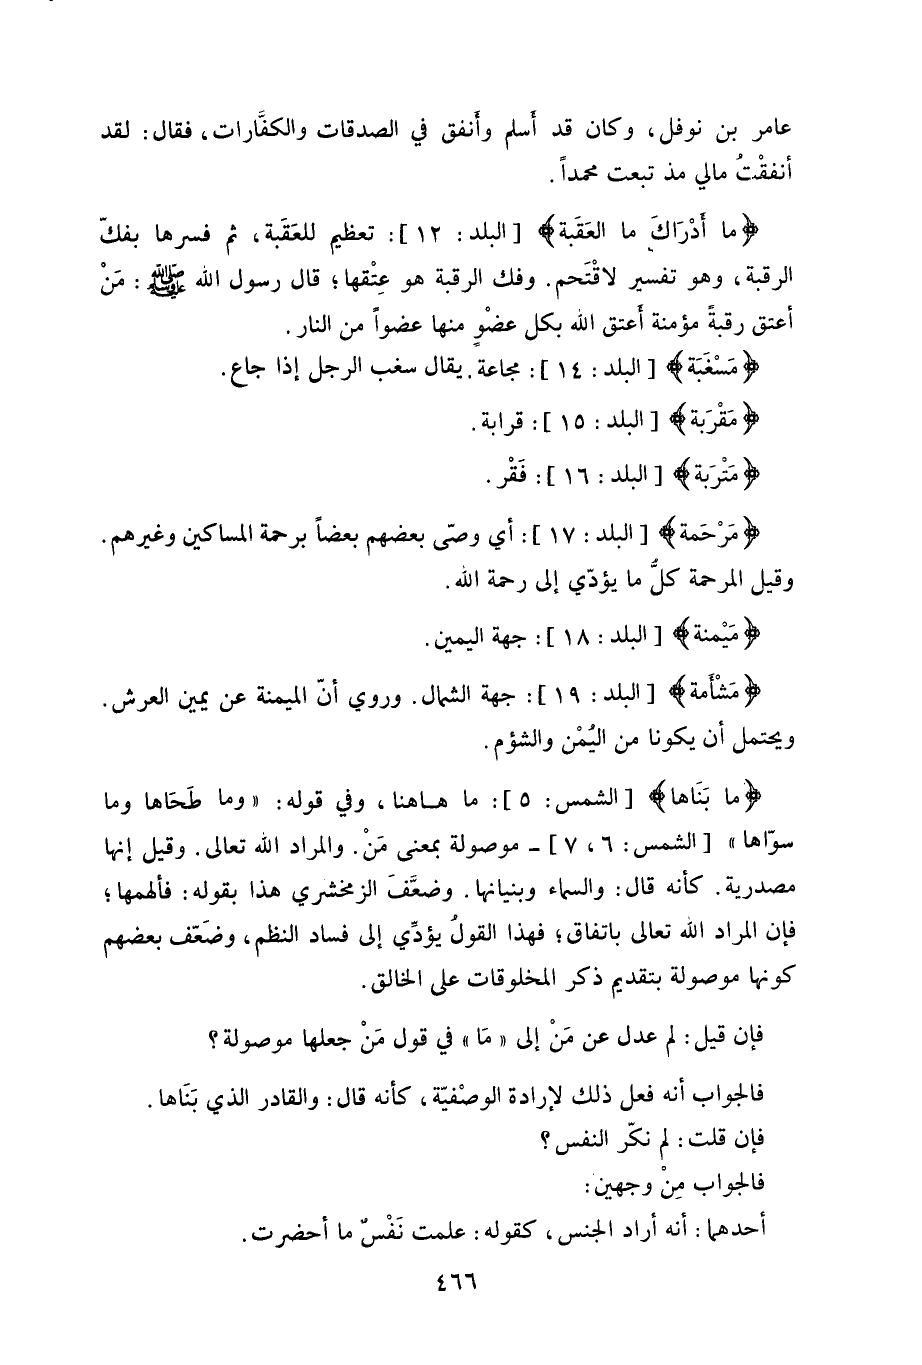 عامر بن نوفل، وكان قد أَسلم وأَنفق في الصدقات والكفَّارات، فقال: لقد
أنفقْتُ مالي مذ تبعت محمداً.
﴿ما أَدْرَاكَ ما العَقَبة﴾ [البلد: ١٢]: تعظيم للعَقَبة، ثم فسرها بفكّ
الرقبة، وهو تفسير لاقْتَحم. وفك الرقبة هو عِتْقها؛ قال رسول الله ﷺ: مَنْ
أعتق رقبةً مؤمنة أَعتق الله بكل عضْوٍ منها عضواً من النار.
﴿مَسْغَبَة﴾ [البلد: ١٤]: مجاعة. يقال سغب الرجل إذا جاع.
﴿مَقْرَبة﴾ [البلد: ١٥]: قرابة.
﴿مَتْرَبة﴾ [البلد: ١٦]: فَقْر.
﴿مَرْحَمة﴾ [البلد: ١٧]: أي وصّى بعضهم بعضاً برحمة المساكين وغيرهم.
وقيل المرحمة كلُّ ما يؤدّي إلى رحمة الله.
﴿مَيْمنة﴾ [البلد: ١٨]: جهة اليمين.
﴿مَشْأَمة﴾ [البلد: ١٩]: جهة الشمال. وروي أنّ الميمنة عن يمين العرش.
ويحتمل أن يكونا من اليُمْن والشؤم.
﴿ما بَنَاها﴾ [الشمس: ٥]: ما هـاهنا، وفي قوله: «وما طَحَاها وما
سوّاها» [الشمس: ٦، ٧] ـ موصولة بمعنى مَنْ. والمراد الله تعالى. وقيل إنها
مصدرية. كأنه قال: والسماء وبنيانها. وضعَّفَ الزمخشري هذا بقوله: فألهمها؛
فإن المراد الله تعالى باتفاق؛ فهذا القولُ يؤدِّي إلى فساد النظم، وضَعّف بعضهم
كونها موصولة بتقديم ذكر المخلوقات على الخالق.
فإن قيل: لم عدل عن مَنْ إلى «مَا» في قول مَنْ جعلها موصولة؟
فالجواب أنه فعل ذلك لإرادة الوصْفيّة، كأنه قال: والقادر الذي بَنَاها.
فإن قلت: لم نكّر النفس؟
فالجواب مِنْ وجهين:
أحدهما: أنه أراد الجنس، كقوله: علمت نَفْسٌ ما أحضرت.
٤٦٦